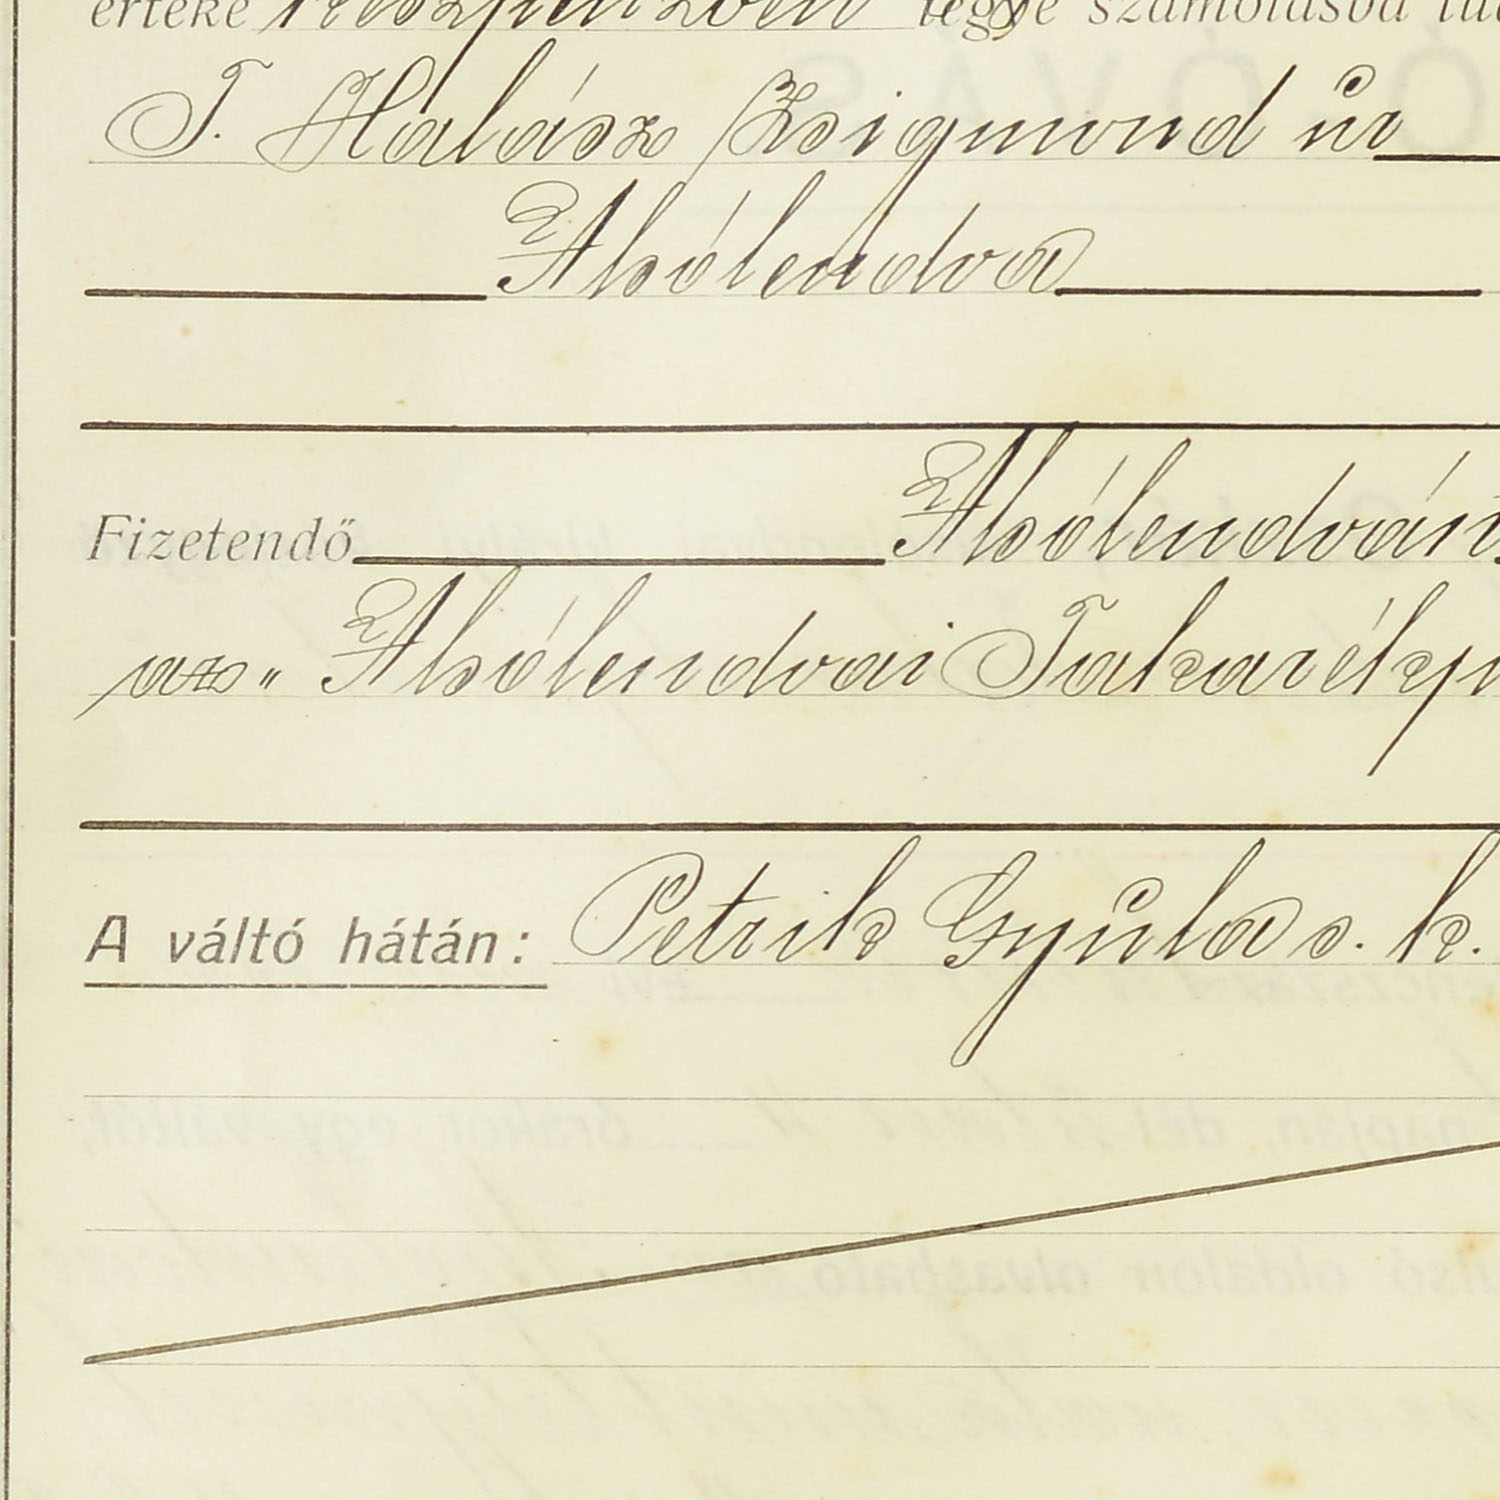 értéke készpénzben tegye számolásba
T. Halász Zsigmond úr
Alsólendva
Fizetendő Alsólendván
az „Alsólendvai Takarékp
A váltó hátán: Petrik Gyula s. k.